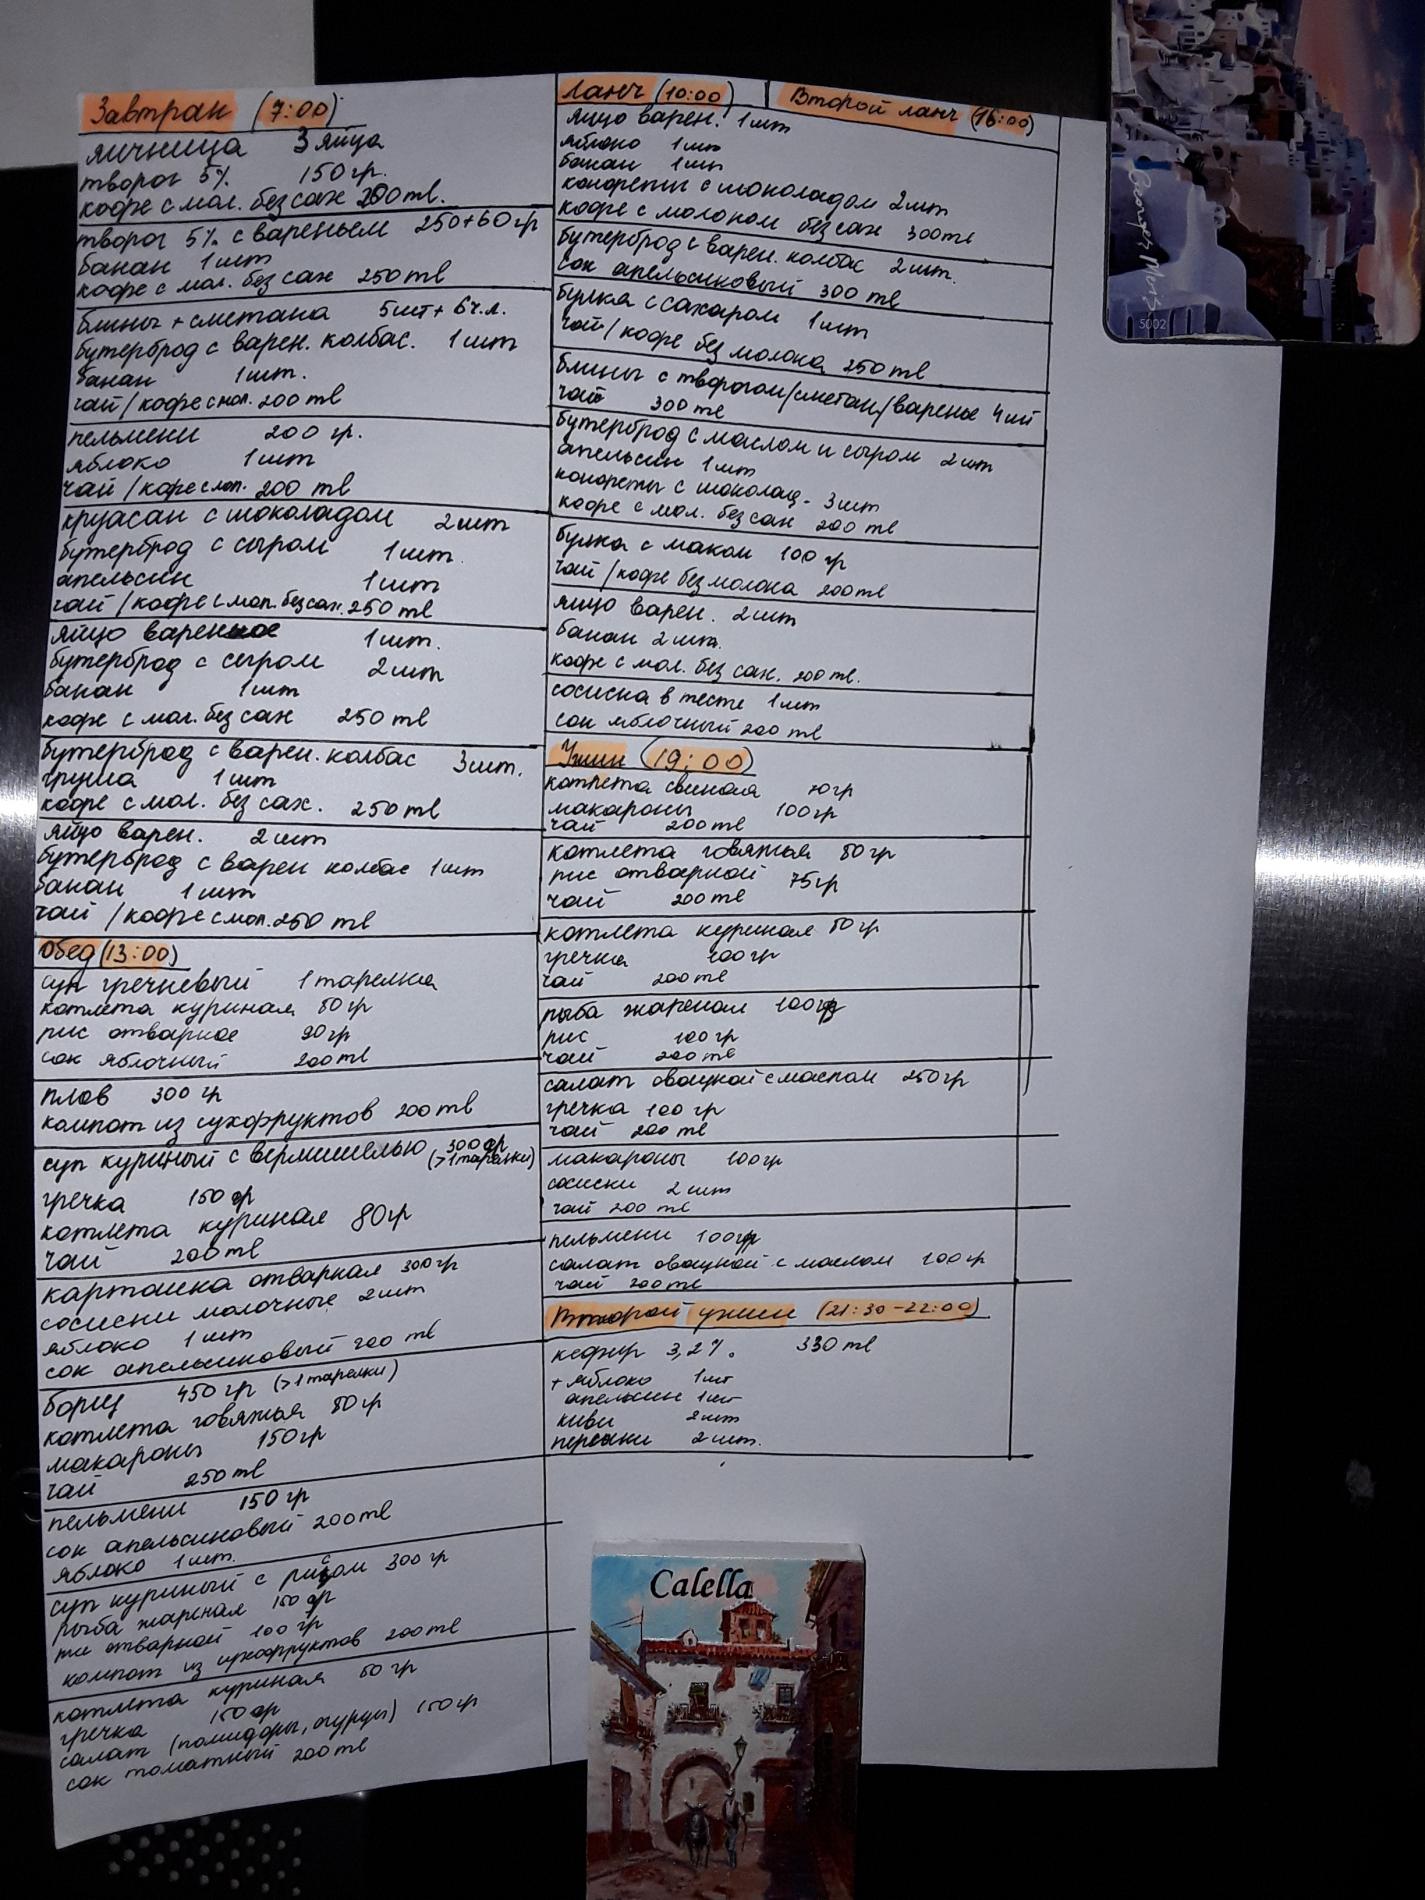 Завтрак (7:00)
яичница 3 яйца
творог 5% 150 гр.
кофе с мол. без сах 200 ml.
творог 5% с вареньем 250+60 гр
банан 1 шт
кофе с мол. без сах 250 ml
блины + сметана 5 шт + 6 ч.л.
бутерброд с варен. колбас. 1 шт
банан 1 шт.
чай / кофе с мол. 200 ml
пельмени 200 гр.
яблоко 1 шт
чай / кофе с мол. 200 ml
круасан с шоколадом 2 шт
бутерброд с сыром 1 шт.
апельсин 1 шт
чай / кофе с мол. без сах. 250 ml
яйцо вареное 1 шт.
бутерброд с сыром 2 шт
банан 1 шт
кофе с мол. без сах 250 ml
бутерброд с варен. колбас 3 шт.
груша 1 шт
кофе с мол. без сах. 250 ml
яйцо варен. 2 шт
бутерброд с варен колбас 1 шт
банан 1 шт
чай / кофе с мол. 250 ml
Обед (13:00)
суп гречневый 1 тарелка
котлета куриная 80 гр
рис отварное 90 гр
сок яблочный 200 ml
плов 300 гр
компот из сухофруктов 200 ml
суп куриный с вермишелью 300 гр
(>1 тарелки)
гречка 150 гр
котлета куриная 80 гр
чай 200 ml
картошка отварная 300 гр
сосиски молочные 2 шт
яблоко 1 шт
сок апельсиновый 200 ml
борщ 450 гр (>1 тарелки)
котлета говяжья 80 гр
макароны 150 гр
чай 250 ml
пельмени 150 гр
сок апельсиновый 200 ml
яблоко 1 шт.
суп куриный с рисом 300 гр
рыба жареная 100 гр
рис отварной 100 гр
компот из сухофруктов 200 ml
котлета куриная 80 гр
гречка 150 гр
салат (помидоры, огурцы) 150 гр
сок томатный 200 ml
Ланч (10:00) Второй ланч (16:00)
яйцо варен. 1 шт
яблоко 1 шт
банан 1 шт
конфеты с шоколадом 2 шт
кофе с молоком без сах 300 ml
бутерброд с варен. колбас 2 шт.
сок апельсиновый 300 ml
булка с сахаром 1 шт
чай / кофе без молока 250 ml
блины с творогом/сметан/варенье 4 шт
чай 300 ml
бутерброд с маслом и сыром 2 шт
апельсин 1 шт
конфеты с шоколад - 3 шт
кофе с мол. без сах 200 ml
булка с маком 100 гр
чай / кофе без молока 200 ml
яйцо варен. 2 шт
банан 2 шт.
кофе с мол. без сах. 200 ml.
сосиска в тесте 1 шт
сок яблочный 200 ml
Ужин (19:00)
котлета свиная 70 гр
макароны 100 гр
чай 200 ml
котлета говяжья 80 гр
рис отварной 75 гр
чай 200 ml
котлета куриная 80 гр
гречка 100 гр
чай 200 ml
рыба жареная 100 гр
рис 100 гр
чай 200 ml
салат овощной с маслом 250 гр
гречка 100 гр
чай 200 ml
макароны 100 гр
сосиски 2 шт
чай 200 ml
пельмени 100 гр
салат овощной с маслом 100 гр
чай 200 ml
Второй ужин (21:30-22:00)
кефир 3,2%. 330 ml
+ яблоко 1 шт
апельсин 1 шт
киви 2 шт
персики 2 шт.
5002
Calella